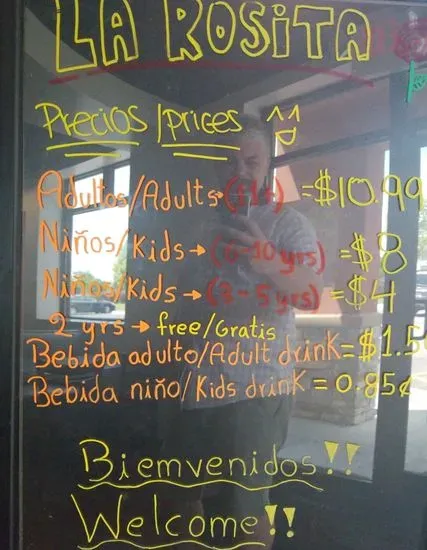 LA ROSITA
Precios/prices ^^
Adultos/Adults→(11+) =$10.99
Niños/Kids→(6-10yrs) =$8
Niños/Kids→(3-5yrs)=$4
2 yrs→free/Gratis
Bebida adulto/Adult drink=$1.5
Bebida niño/Kids drink=0.85¢
Biemvenidos!!
Welcome!!